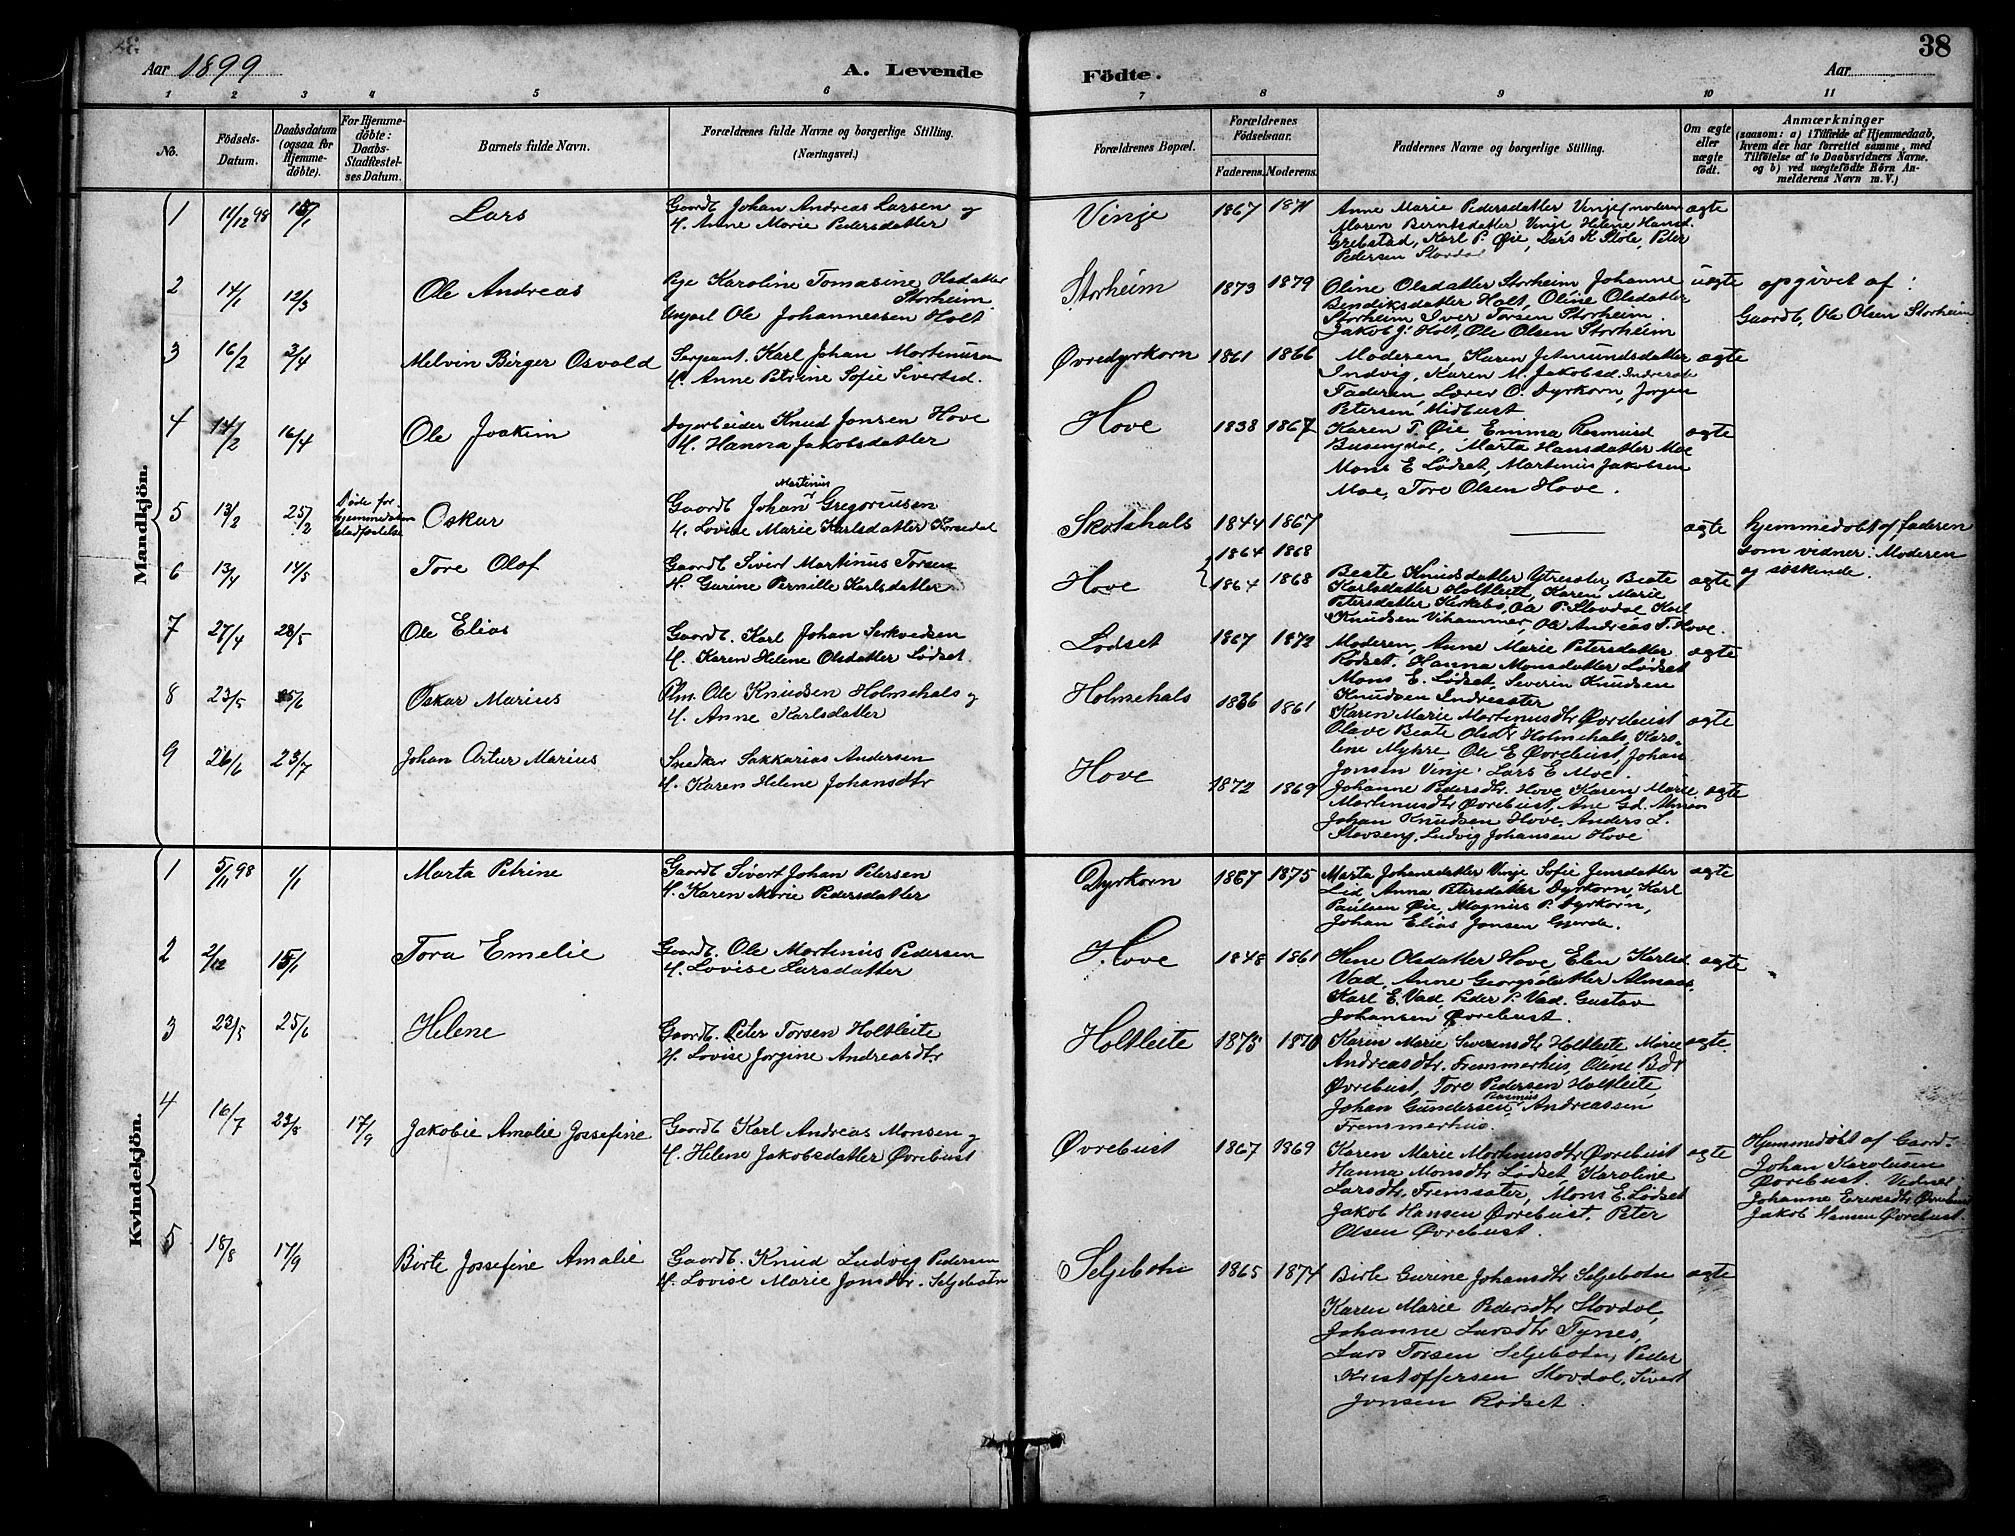 Aar 1899
A. Levende
Födte.
Aar
38
1 2 3 4 5 6 7 8 9 10 11
No.
Födsels-Datum.
Daabsdatum (ogsaa for Hjemme-döbte).
For Hjemme-döbte: Daabs-Stadfæstel-ses Datum.
Barnets fulde Navn.
Forældrenes fulde Navne og borgerlige Stilling. (Næringsvei.)
Forældrenes Bopæl.
Forældrenes Födselsaar.
Faderens. Moderens.
Faddernes Navne og borgerlige Stilling.
Om ægte eller uægte födt.
Anmærkninger
(saasom: a) i Tilfælde af Hjemmedaab,
hvem der har forrettet samme, med
Tilföielse af to Daabsvidners Navne.
og b) ved uægtefödte Börn An-
melderens Navn m. V.)
Mandkjön.
1 11/12 98 15/1 Lars
Gaardb Johan Andreas Larsen og
H. Anne Marie Pedersdatter
Vinje 1867 1871
Anne Marie Pedersdatter Vinje (moderen
Maren Berntsdatter Vinje Helene Hansd.
Grebstad, Karl P. Øie, Lars K Stole, Peter
Pedersen Stavdal
ægte
2 14/1 12/3 Ole Andreas
Pige Karoline Tomasine Olsdatter
Storheim
Ungkarl Ole Johannessen Holt
Storheim 1873 1879
Oline Olsdatter Storheim Johanne
Bendiksdatter Holt, Oline Olsdatter
Storheim Iver Torsen Storheim.
Jakob J. Holt, Ole Olsen Storheim
uægte
opgivet af:
Gaardb, Ole Olsen Storheim
3 16/2 3/4 Melvin Birger Osvald
Sergeant. Karl Johan Martinusen
H. Anne Petrine Sofie Sivertsd.
Øvredyrkorn 1861 1866
Moderen, Karen Jetmundsdatter
Indvig, Karen M. Jakobsd. Indresæt
Faderen, Lærer O. Dyrkorn, Jørgen
Petersen Midbust
ægte
4 14/2 16/4 Ole Joakim
Dagarbeider Knud Jonsen Hove
H. Hanna Jakobsdatter
Hove 1838 1867
Karen T. Øie Emma Rasmusd
Busengdal, Marta Hansdatter Moe
Mons E Lødset, Martinus Jakobsen
Moe, Tore Olsen Hove.
ægte
5 13/2 25/2
Døde før
hjemmedaaben
stadfæstelse
Oskar
Martinus
Gaardb Johan Gregoriusen
H. Lovise Marie Karlsdatter Korsedal
Skotshals 1844 1867
ægte
hjemmedøbt af faderen
som vidner: Moderen
og søskende.
6 13/4 14/5 Tore Olaf
Gaardb Sivert Martinus Torsen
H. Gurine Pernille Karlsdatter
Hove
1864 1868
1864 1868
Beate Knudsdatter Ytresæter, Beate
Karlsdatter Holtleite, Karen Marie
Petersdatter Kirkebø, Ole P. Stavdal Karl
Knudsen Vihammer, Ole Andreas T. Hove.
ægte
7 27/4 28/5 Ole Elias
Gaardb. Karl Johan Serkvedsen
H. Karen Helene Olsdatter Lødset.
Lødset 1867 1872
Moderen, Anne Marie Petersdatter
Rødset. Hanna Monsdatter Lødset
Mons E. Lødset, Severin Knudsen
Knudsen Indresæter
ægte
8 23/5 25/6 Oskar Marius
Plm. Ole Knudsen Holmehals og
H. Anne Karlsdatter
Holmehals 1836 1861
Karen Marie Martinusdtr Øvrebust
Olave Beate Olsdtr Holmehals, Karo-
line Myhre, Ole E Øvrebust, Johan
Jonsen Vinje. Lars E Moe.
ægte
9 26/6 23/7 Johan Artur Marius
Snedker Sakkarias Andersen
H. Karen Helene Johansdtr
Hove 1872 1869
Johanne Pedersdtr Hove Karen Marie
Martinusdtr Øvrebust, Ane Gd. Almaas
Johan Knudsen Hove. Anders L.
Stavseng, Ludvig Johansen Hove
ægte
Kvindekjön.
1 5/11 98 1/1 Marta Petrine
Gaardb Sivert Johan Petersen
H. Karen Marie Pedersdatter
Dyrkorn 1867 1875
Marta Johansdatter Vinje Sofie Jensdatter
Lid, Anna Petersdatter Dyrkorn, Karl
Paulsen Øie, Magnus P. Dyrkorn,
Johan Elias Jonsen Gjerde.
ægte
2 2/12 15/1 Tora Emelie
Gaardb. Ole Martinus Pedersen
H. Lovise Larsdatter
Hove 1848 1861
Olsdatter Hove, Elen Karlsd
Vad, Anne Georgsdatter Almaas,
Karl E. Vad, Peder P. Vad. Gustav
Johansen Øvrebust.
ægte
3 23/5 25/6 Helene
Gaardb. Peter Torsen Holtleite
H. Lovise Jorgine Andreasdtr
Holtleite 1875 1870
Karen Marie Severinsdtr Holtleite Marie
Andreasdtr. Fremmerhus, Oline Bdtr
Øvrebust, Tore Pedersen Holtleite,
Rasmus
Johan Gundersen, Andreassen
Fremmerhus.
ægte
4 16/7 23/8 17/9 Jakobie Amalie Jossefine
Gaardb Karl Andreas Monsen og
H. Helene Jakobsdatter Øvrebust
Øvrebust 1867 1869
Karen Marie Martinusdtr Øvrebust
Hanna Monsdtr Lødset, Karoline
Larsdtr. Fremsæter, Mons E. Lødset
Jakob Hansen Øvrebust. Peter
Olsen Øvrebust.
ægte
Hjemmedøbt af Gaard-
Johan Karolusen
Øvrebust. Vidner
Johanne Eriksdtr Øvrebust
Jakob Hansen Øvrebust.
5 18/8 17/9 Birte Jossefine Amalie
Gaardb. Knud Ludvig Pedersen
H. Lovise Marie Jonsdtr. Seljebotn
Seljebotn 1865 1874
Birte Gurine Johansdtr Seljebotn
Karen Marie Pedersdtr Stovdal,
Johanne Larsdtr Tynes,
Lars Torsen Seljebotn, Peder
Kristoffersen Stovdal, Sivert
Jonsen Rødset.
ægte